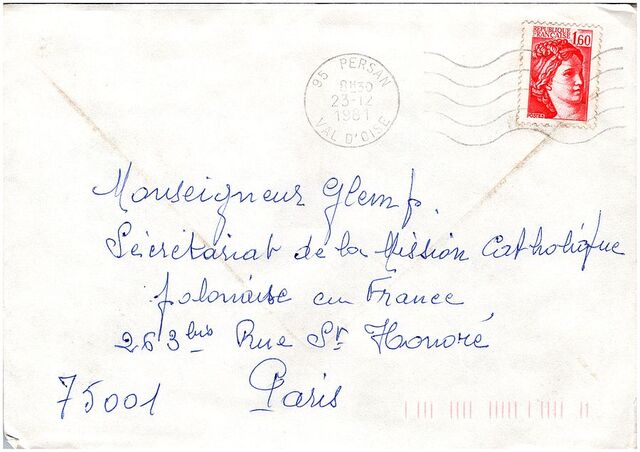 RÉPUBLIQUE
FRANÇAISE
1,60
POSTES
95 PERSAN
8H30
23-12
1981
VAL D'OISE
Monseigneur Glemp.
Sécrétariat de la Mission Catholique
polonaise en France
263 bis Rue St Honoré
75001 Paris